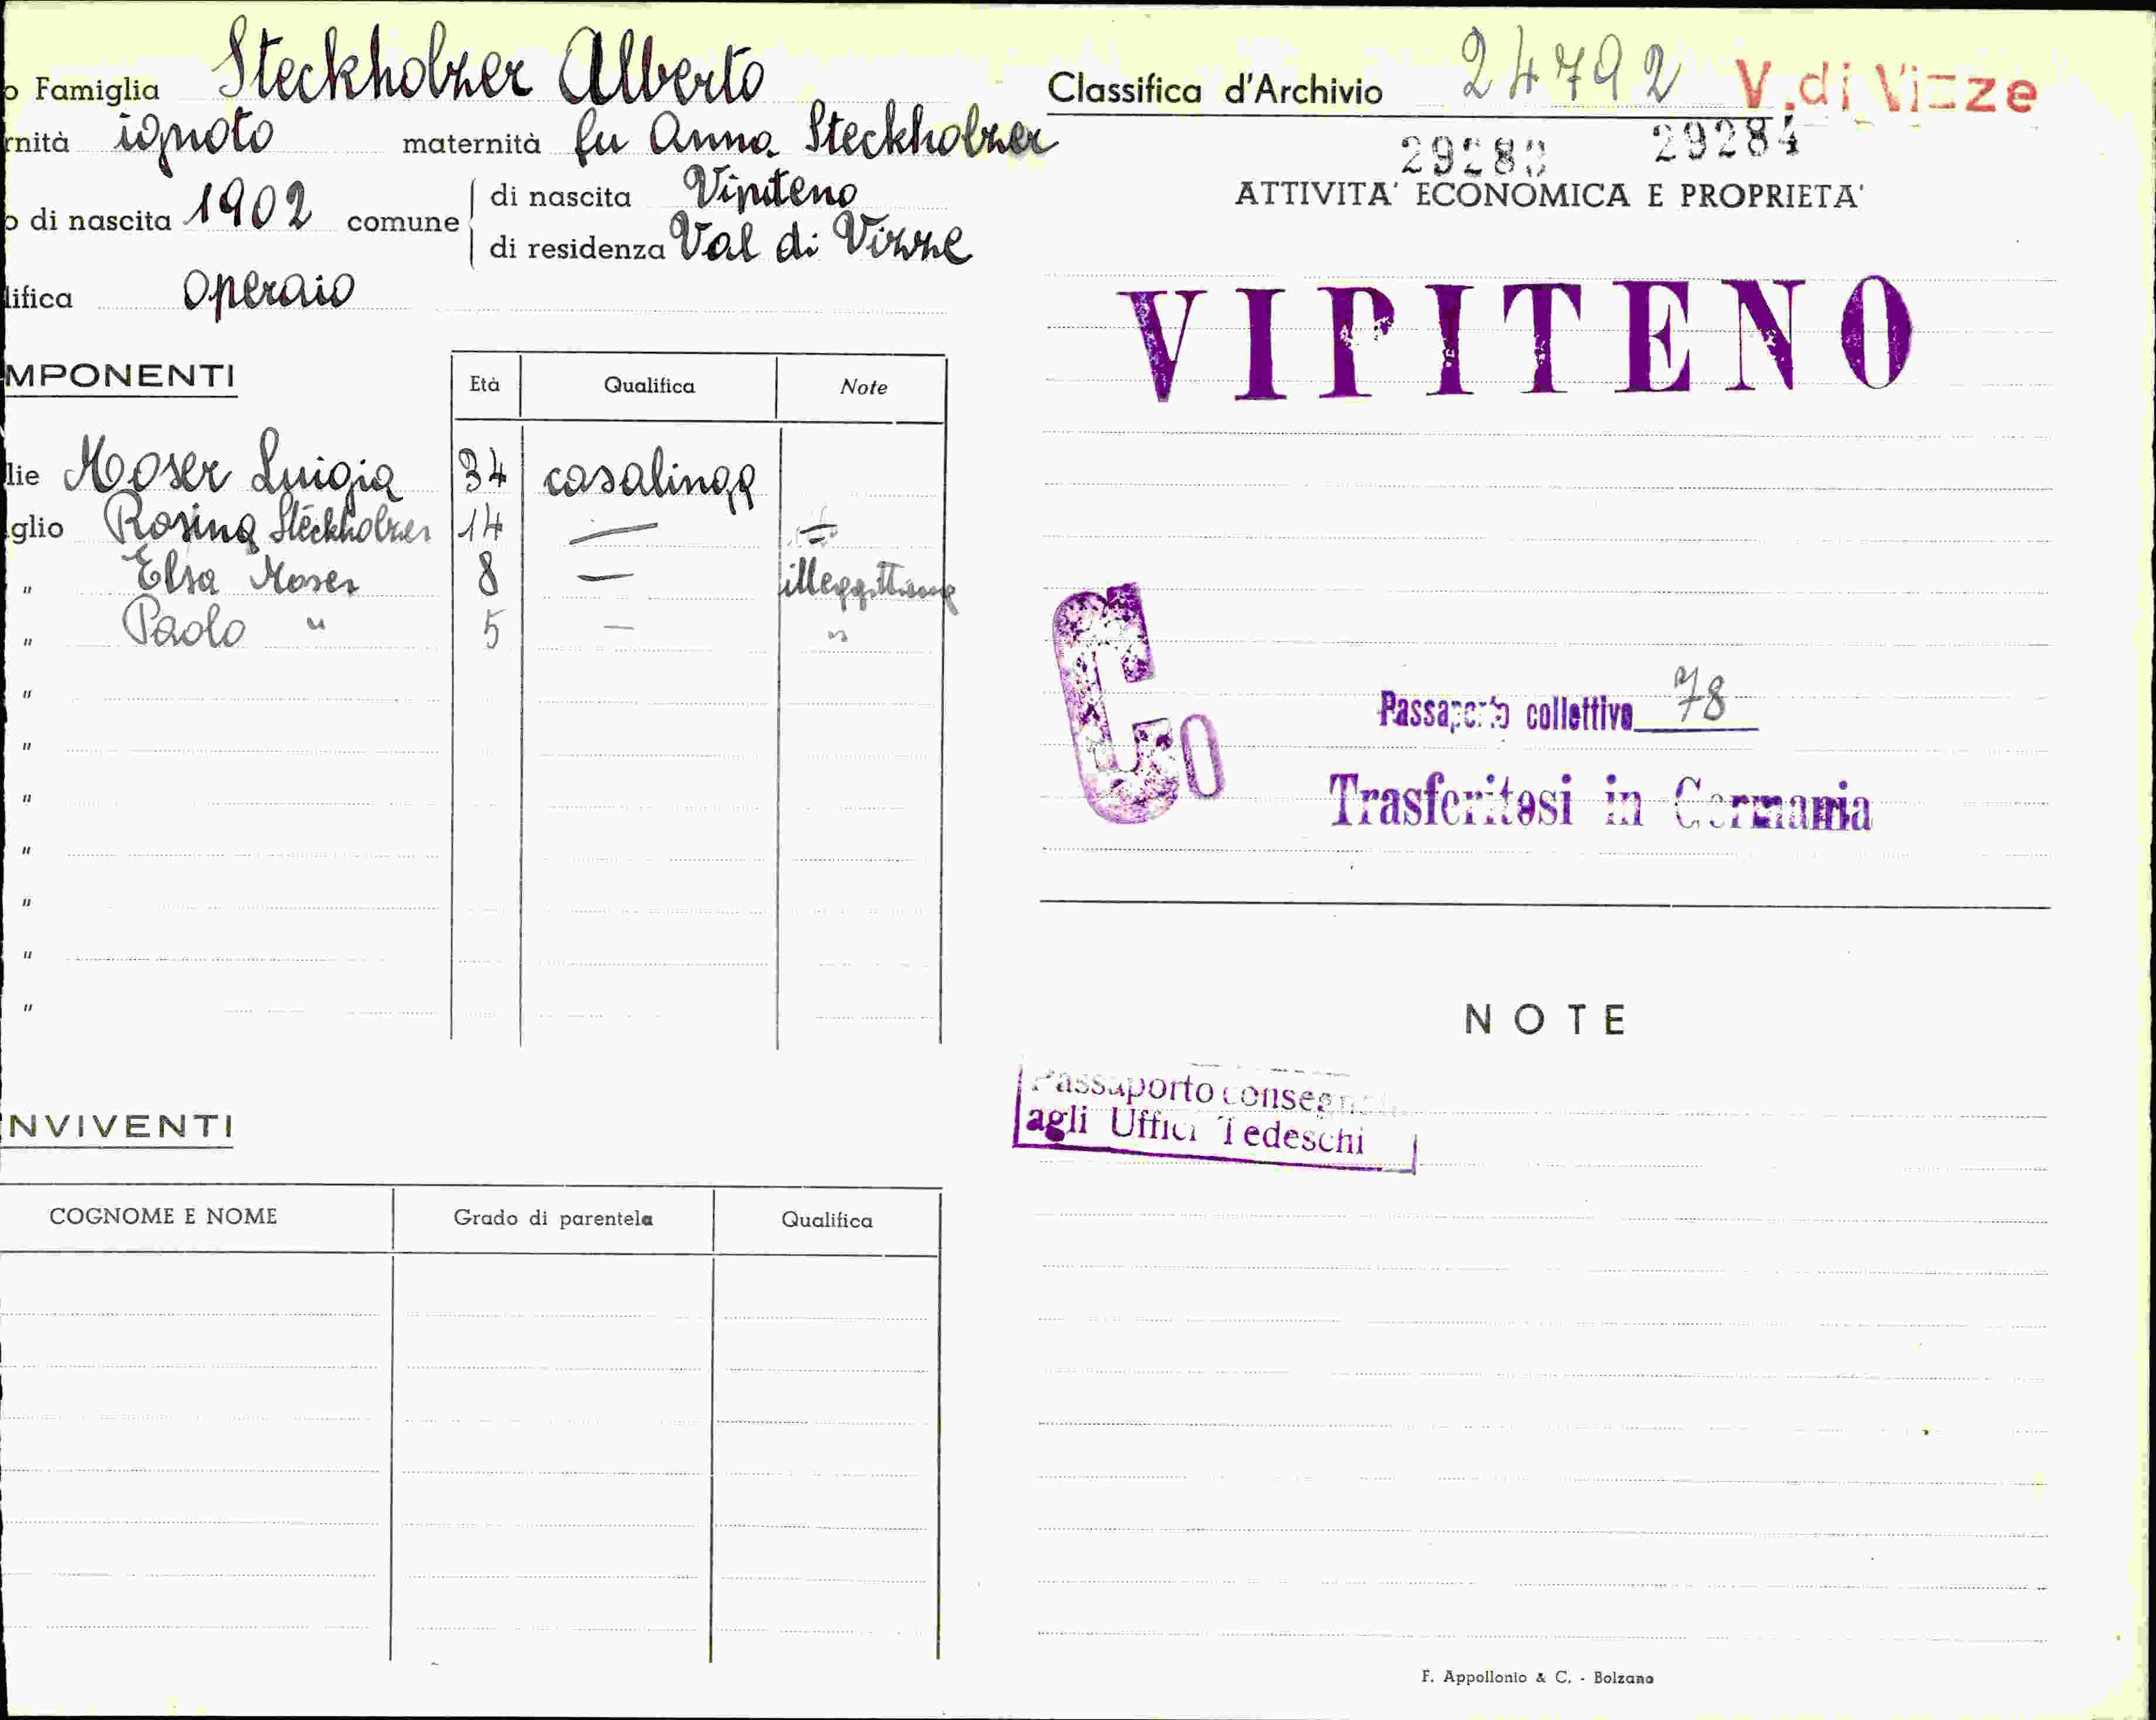 o Famiglia Steckholzer Alberto
rnità ignoto maternità fu Anna Steckholzer
o di nascita 1902 comune di nascita Vipiteno
di residenza Val di Vizze
lifica operaio
MPONENTI
Età Qualifica Note
lie Moser Luigia 34 casalinga
glio Rosina Steckholzer 14 —
" Elsa Moser 8 — illeggittima
" Paolo " 5 — "
"
"
"
"
"
"
"
NVIVENTI
COGNOME E NOME Grado di parentela Qualifica
Classifica d'Archivio 24792 V. di Vizze
29284
ATTIVITA' ECONOMICA E PROPRIETA'
VIPITENO
G50
Passaporto collettivo 78
Trasferitosi in Germania
NOTE
Passaporto
agli Uffici Tedeschi
F. Appollonio & C. - Bolzano